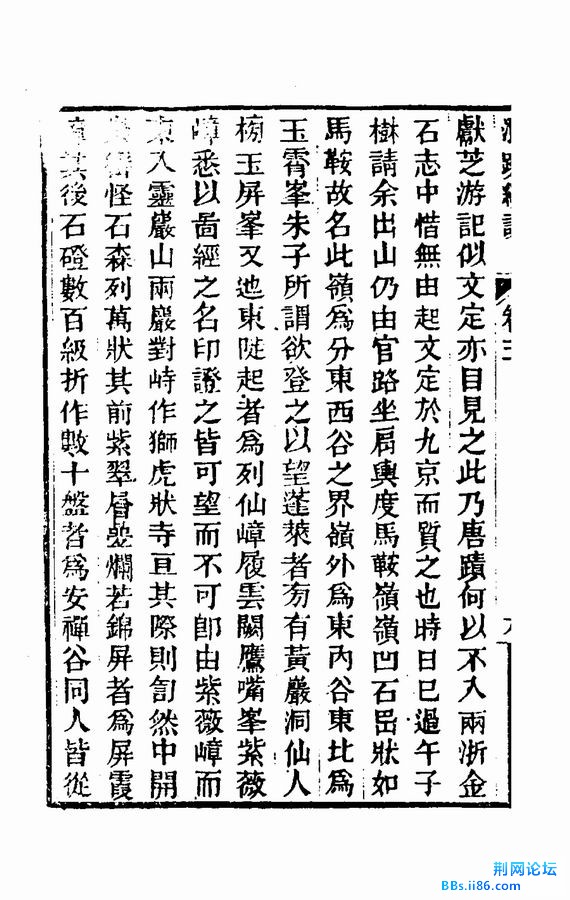 卷三
獻芝游記似文定亦目見之此乃唐蹟何以不入兩浙金
石志中惜無由起文定於九京而質之也時日已過午子
樹請余出山仍由官路坐肩輿度馬鞍嶺嶺凹石岊狀如
馬鞍故名此嶺為分東西谷之界嶺外為東內谷東北為
玉霄峯朱子所謂欲登之以望蓬萊者旁有黃巖洞仙人
橋玉屏峯又迤東陡起者為列仙嶂履雲闕鷹嘴峯紫薇
嶂悉以啚經之名印證之皆可望而不可卽由紫薇嶂而
東入靈巖山兩巖對峙作獅虎狀寺亘其際則訇然中開
怪石森列萬狀其前紫翠層疊爛若錦屏者為屏霞
其後石磴數百級折作數十盤者為安禪谷同人皆從
荆网论坛
BBs.ii86.com